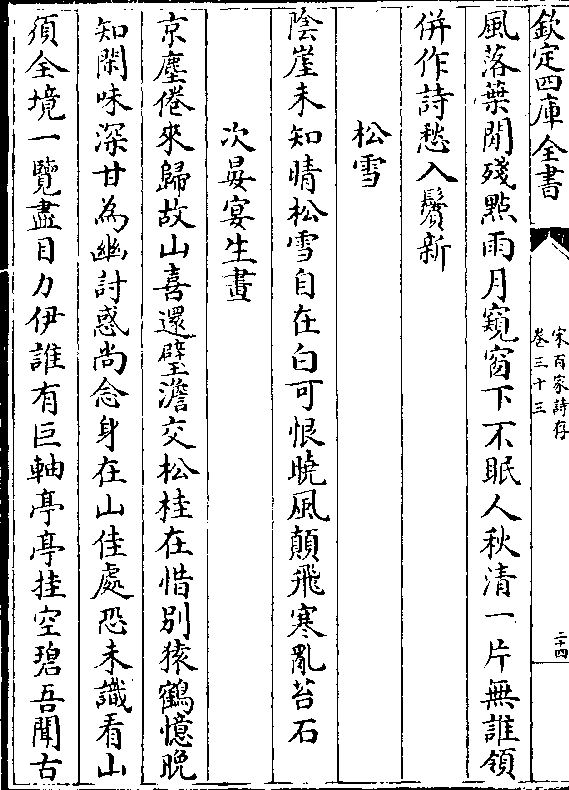 欽定四庫全書
宋百家詩存
卷三十三
二十四
風落葉間殘點雨月窺窗下不眠人秋清一片無誰領
併作詩愁入鬢新
松雪
陰崖未知晴松雪自在白可恨曉風顛飛寒亂苔石
次晏宴生畫
京塵倦來歸故山喜還璧澹交松桂在惜別猿鶴憶晚
知閑味深甘為幽討惑尚念身在山佳處恐未識看山
須全境一覽盡目力伊誰有巨軸亭亭挂空碧吾聞古